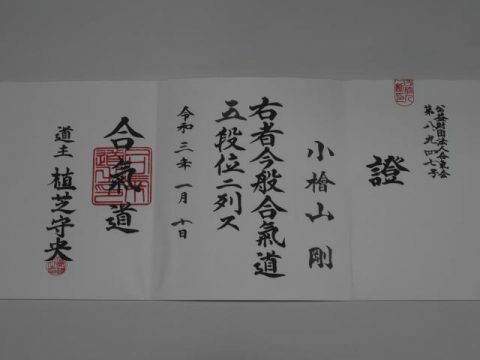 公益財団法人合気会
第八九四七号
證
小檜山 剛
右者今般合氣道
五段位ニ列ス
令和三年一月十日
合氣道
道主 植芝守央